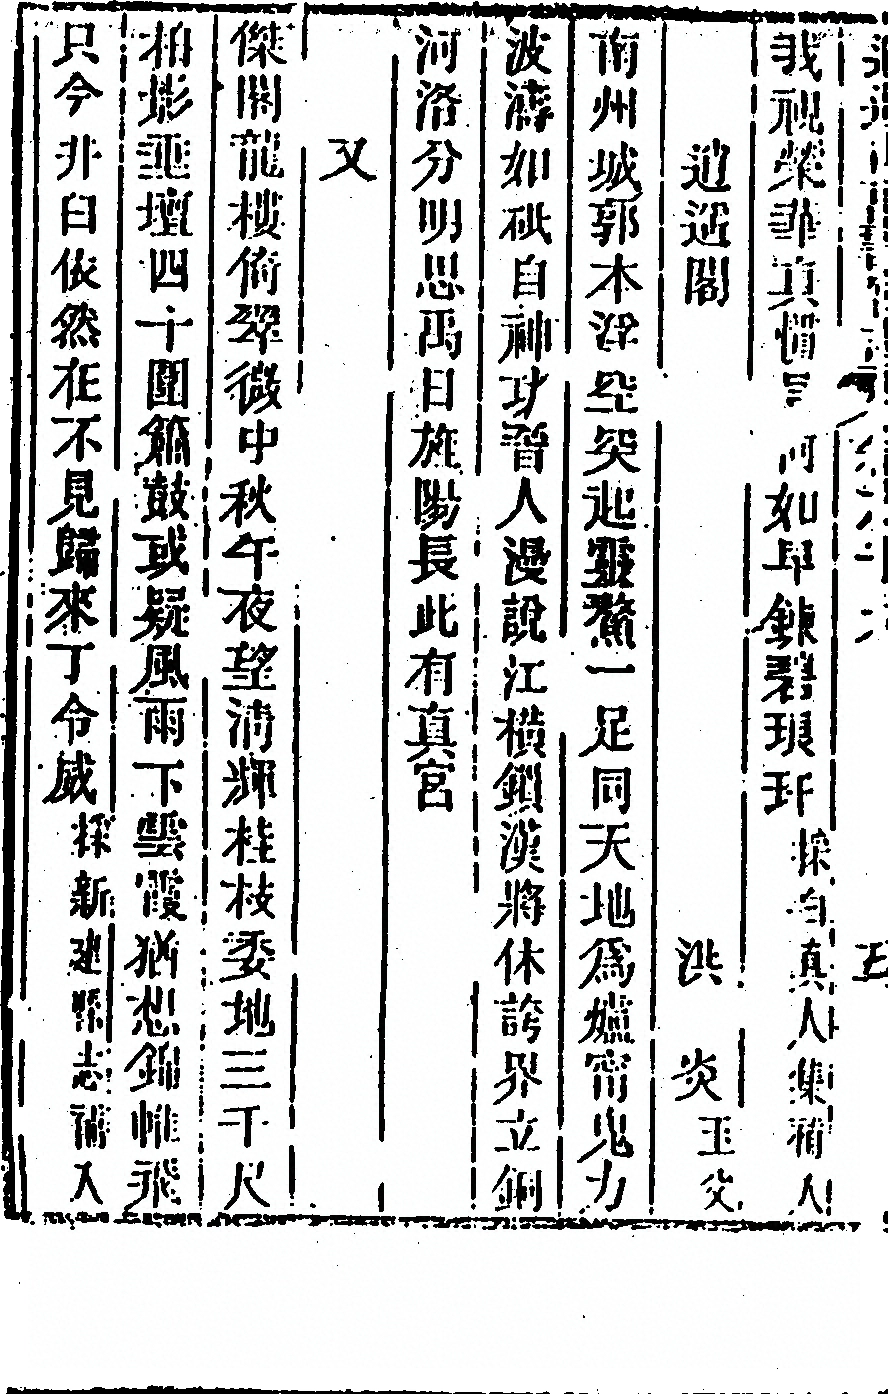 我視榮華真何如早鍊碧琅玕 採自真人集補入
逍遙閣 洪炎 玉父
南州城郭本浮空突起靈鰲一足同天地爲爐甯鬼力
波濤如砥自神功晉人漫說江橫鎖漢將休誇界立銅
河洛分明思禹日旌陽長此有真宮
又
傑閣龍樓俯翠微中秋午夜望清輝桂枝委地三千尺
柏影亞壇四十圍簫鼓或疑風雨下雲霞猶想錦帷飛
只今井臼依然在不見歸來丁令威 採新建縣志補入